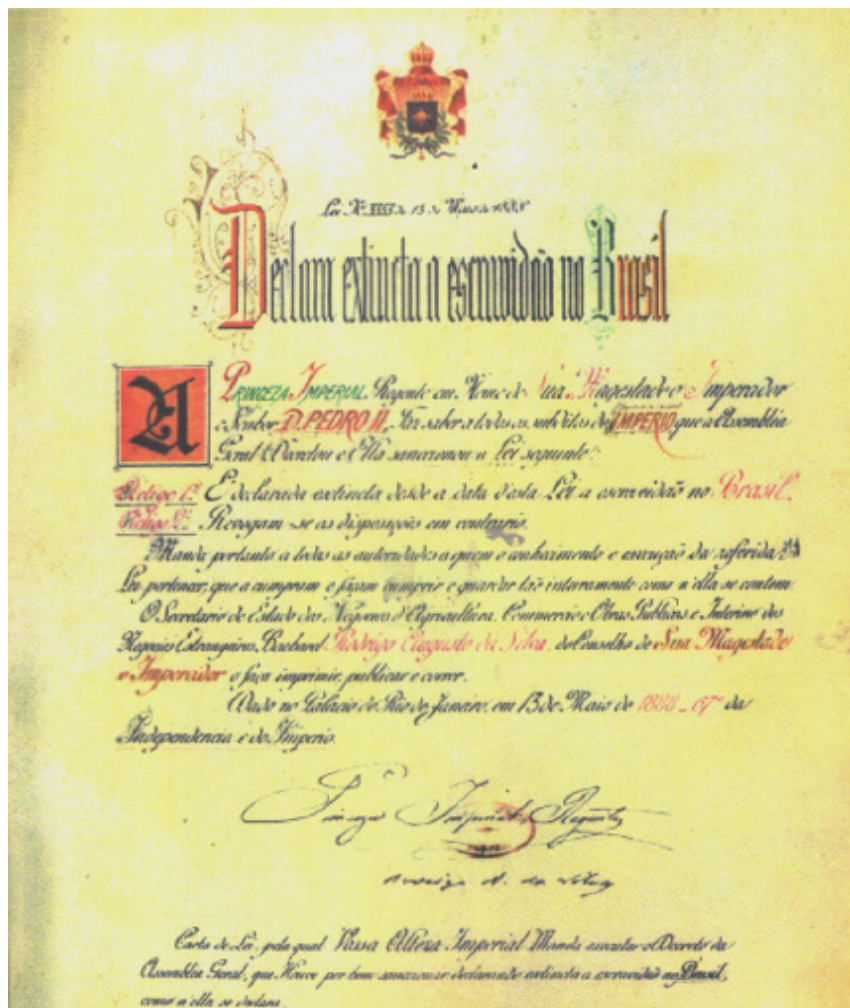 Lei Nº 3353 de 13 de Maio de 1888
Declara extincta a escravidão no Brasil
A PRINCEZA IMPERIAL Regente em Nome de Sua Magestade o Imperador
o Senhor D. PEDRO II, Faz saber a todos os subditos do IMPERIO que a Assembléa
Geral Decretou e Ella sanccionou a Lei seguinte:
Artigo 1º: É declarada extincta desde a data d'esta Lei a escravidão no Brasil.
Artigo 2º: Revogam-se as disposições em contrario.
Manda portanto a todas as autoridades a quem o conhecimento e execução da referida
Lei pertencer, que a cumpram e façam cumprir e guardar tão inteiramente como n'ella se contem
O Secretario de Estado dos Negocios d'Agricultura, Commercio e Obras Publicas e Interino dos
Negocios Estrangeiros, Bacharel Rodrigo Augusto da Silva do Conselho de Sua Magestade
o Imperador o faça imprimir, publicar e correr.
Dado no Palacio do Rio de Janeiro, em 13 de Maio de 1888 - 67º da
Independencia e do Imperio.
Princeza Imperial Regente
Rodrigo A. da Silva
Carta de Lei, pela qual Vossa Alteza Imperial Manda executar o Decreto da
Assembléa Geral, que Houve por bem sanccionar declarando extincta a escravidão no Brasil,
como n'ella se declara